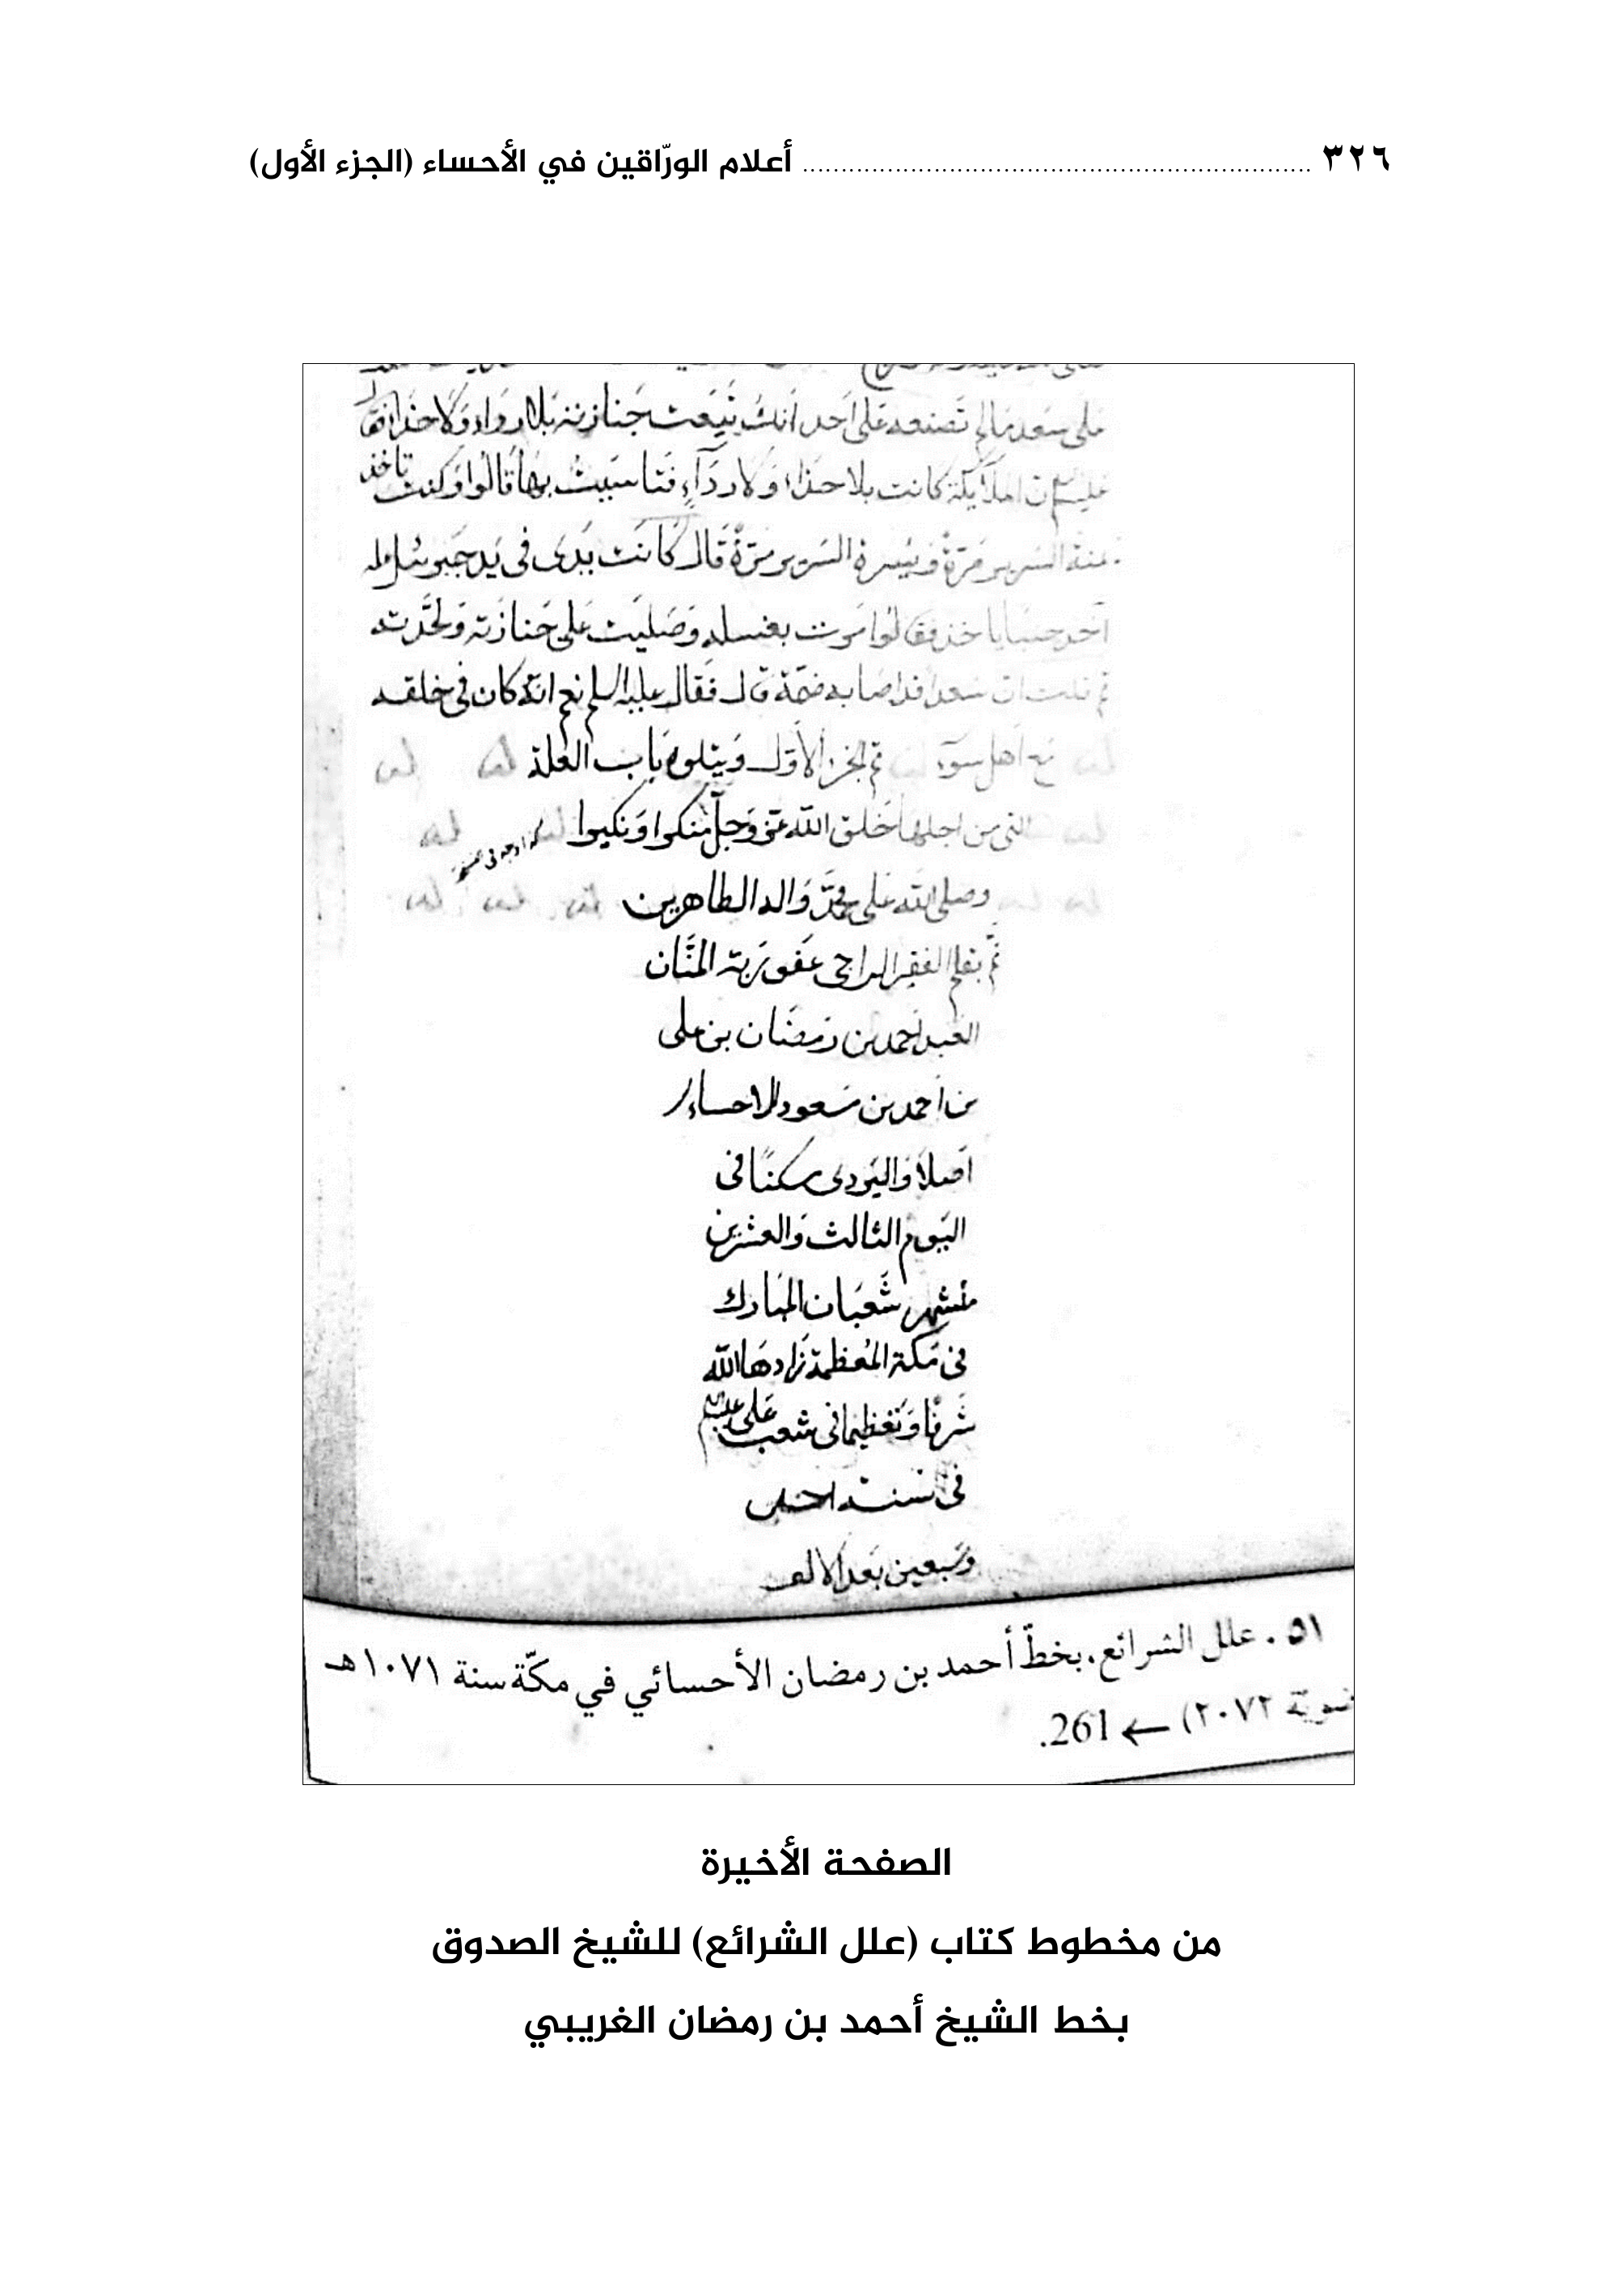 ٣٢٦ ........................ أعلام الورّاقين في الأحساء (الجزء الأول)
على سعد مالم تصنعه على احد انك تبعت جنازته بلا رداء ولا حذا فقال
ان الملائكة كانت بلا حذاء ولا ردآء فتاسيت بها قالوا وكنت تاخذ
السرير مرة ويسرة السرير مرة قال كانت يدى فى يد جبرئيل
آخذ حيث يأخذ فقالوا امرت بغسله وصليت على جنازته ولحدته
ثم قلت ان سعدا قد اصابه ضمة قال فقال عليه السلم نعم انه كان فى خلقه
مع اهله سوء تم الجزء الأول ويتلوه باب العلة
التى من اجلها خلق الله عز وجل منكرا ونكيرا
وصلى الله على محمد واله الطاهرين
تم بقلم الفقير الراجى عفو ربه المنان
العبد احمد بن رمضان بن على
بن احمد بن مسعود الاحسائى
اصلا سكنًا فى
اليوم الثالث والعشرين
من شهر شعبان المبارك
فى مكة المعظمة زادها الله
شرفا وتعظيما فى شعب على عليه السلم
فى سنة احدى
وسبعين بعد الالف
٥١ . علل الشرائع، بخطّ أحمد بن رمضان الأحسائي في مكّة سنة ١٠٧١هـ
٢٠٧٢) ← 261.
الصفحة الأخيرة
من مخطوط كتاب (علل الشرائع) للشيخ الصدوق
بخط الشيخ أحمد بن رمضان الغريبي